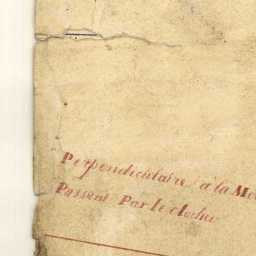 Perpendiculaire à la Me
Passent Par le clocher